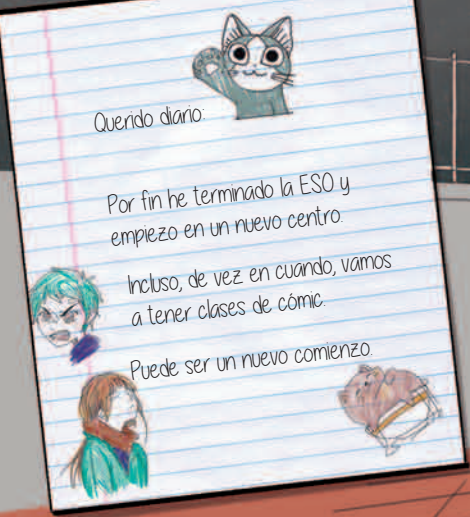 Querido diario:
Por fin he terminado la ESO y
empiezo en un nuevo centro.
Incluso, de vez en cuando, vamos
a tener clases de cómic.
Puede ser un nuevo comienzo.